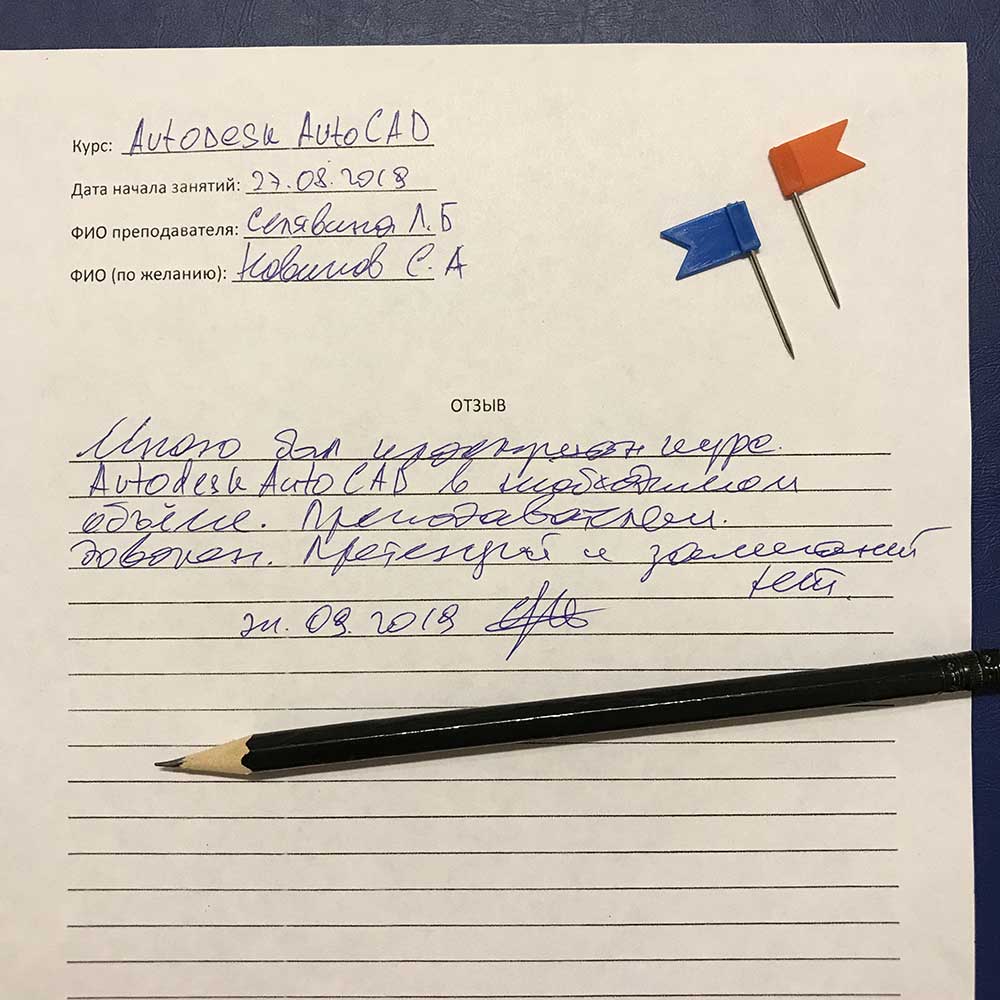 Курс: Autodesk AutoCAD
Дата начала занятий: 27.08.2018
ФИО преподавателя: Селявина Л.Б
ФИО (по желанию): Новиков С.А
ОТЗЫВ
Мною был курс.
Autodesk AutoCAD в необходимом
объёме. Преподавателем.
доволен. Претензий и замечаний
нет.
09.2018